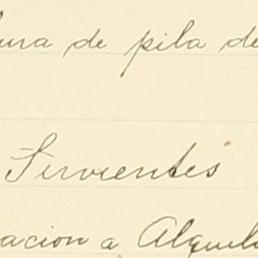 ura de pila de
Sirvientes
acion a Alquile